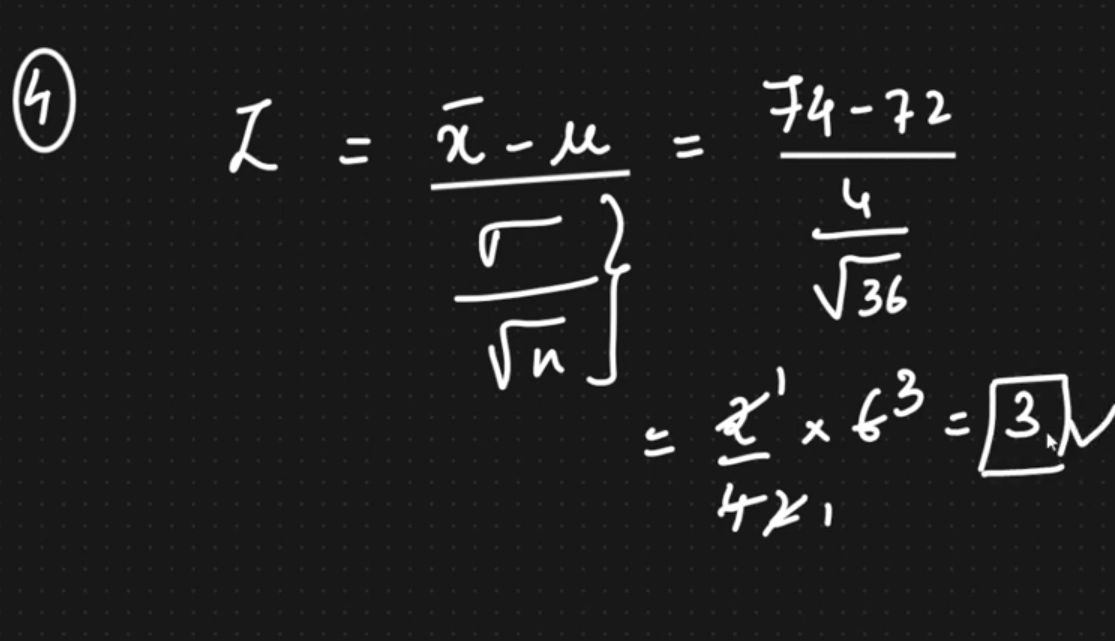 ④
Z = x̄ - μ / σ/√n = 74-72 / 4/√36
= 2 1 / 4 2 1 × 6 3 = 3 ✓